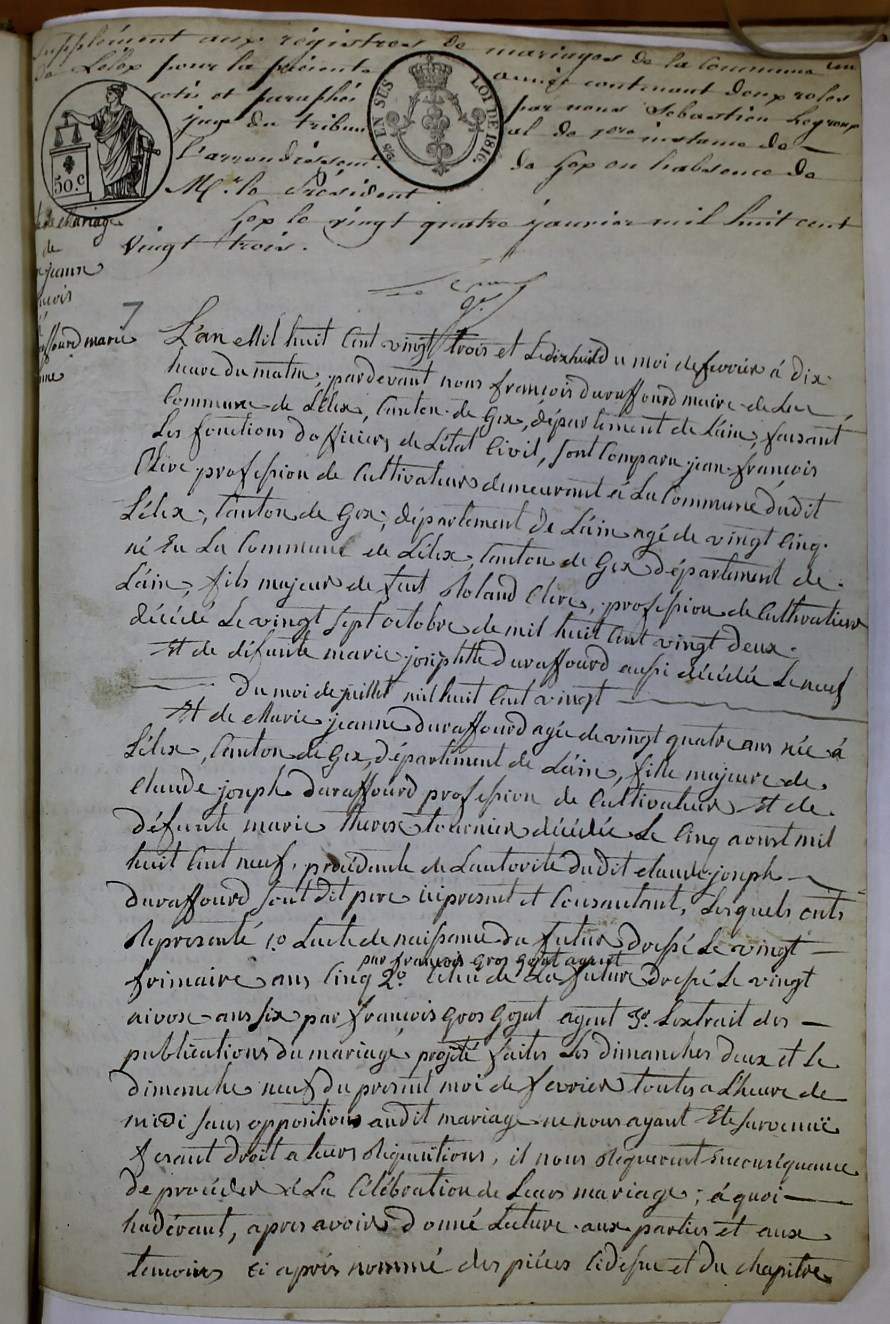 Supplément aux régistres de mariages de la Commune
de Lélex pour la présente année contenant deux roles
cotés et paraphés par nous Sébastien
juge du tribunal de 1ere instance de
l'arrondissemt. de Gex en l'absence de
Mr. le Président
Gex le vingt quatre janvier mil huit cent
Vingt trois.
EN SUS
LOI DE 1816.
50.c
de Mariage
de
jean
7
duraffourd marie
L'an Mil huit Cent vingt trois et Ledixhuit du moi de fevrier à dix
heure du matin, pardevant nous françois duraffourd maire de La
Commune de Lélex, Canton de Gex, département de L'ain, faisant
Les fonctions d'officier de L'état Civil, sont Comparu jean françois
Clerc profession de Cultivateur demeurant à La Commune dudit
Lélex, Canton de Gex, département de L'ain agé de vingt Cinq
né En La Commune de Lélex, Canton de Gex département de
L'ain, fils majeur de feut Roland Clerc, profession de Cultivateur
décédé Le vingt Sept octobre de mil huit Cent vingt deux.
Et de défunte marie josephte duraffourd aussi décédée Le neuf
du moi de juillet mil huit Cent vingt
Et de Marie jeanne duraffourd agée de vingt quatre ans née á
Lélex, Canton de Gex, département de L'ain, fille majeure de
Claude joseph duraffourd profession de Cultivateur Et de
défunte marie therese tournier décédée Le Cinq aoust mil
huit Cent neuf, procédante de L'autorité dudit Claude joseph
duraffourd sont dit pere ici present et Consentant, Lesquels onts
Representé 1o. L'acte de naissance du futur dressé Le vingt
par françois Gros Gojat agent
frimaire ans Cinq 2o. Celui de La future dressé Le vingt
nivose ans six par françois Gros Gojat agent 3o. L'extrait des
publications du mariage projeté faites Les dimanches deux et Le
dimanche neuf du present moi de fevrier toutes a L'heure de
midi sans opposition audit mariage ne nous ayant Ete survenue
fesant droit a leurs Requisitions, il nous Requerent En conséquance
de procéder á La Célébration de Leurs mariage; á quoi
hadérant, apres avoir donné Lecture aux parties et aux
temoins Ci après nommé des piéces Cidessu et du chapitre